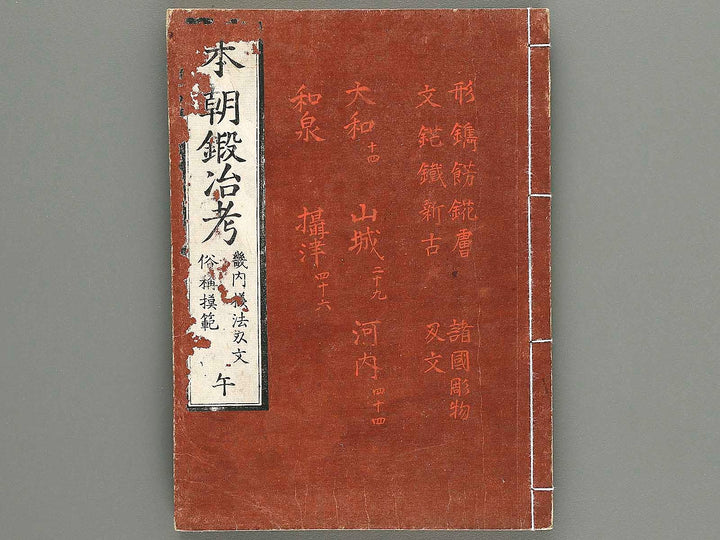 本朝鍛冶考
畿内 法刄文
俗称摸範
午
形鐫
諸國彫物
文鉎鐵新古
刄文
大和十四
山城二十九
河内四十四
和泉
攝津四十六